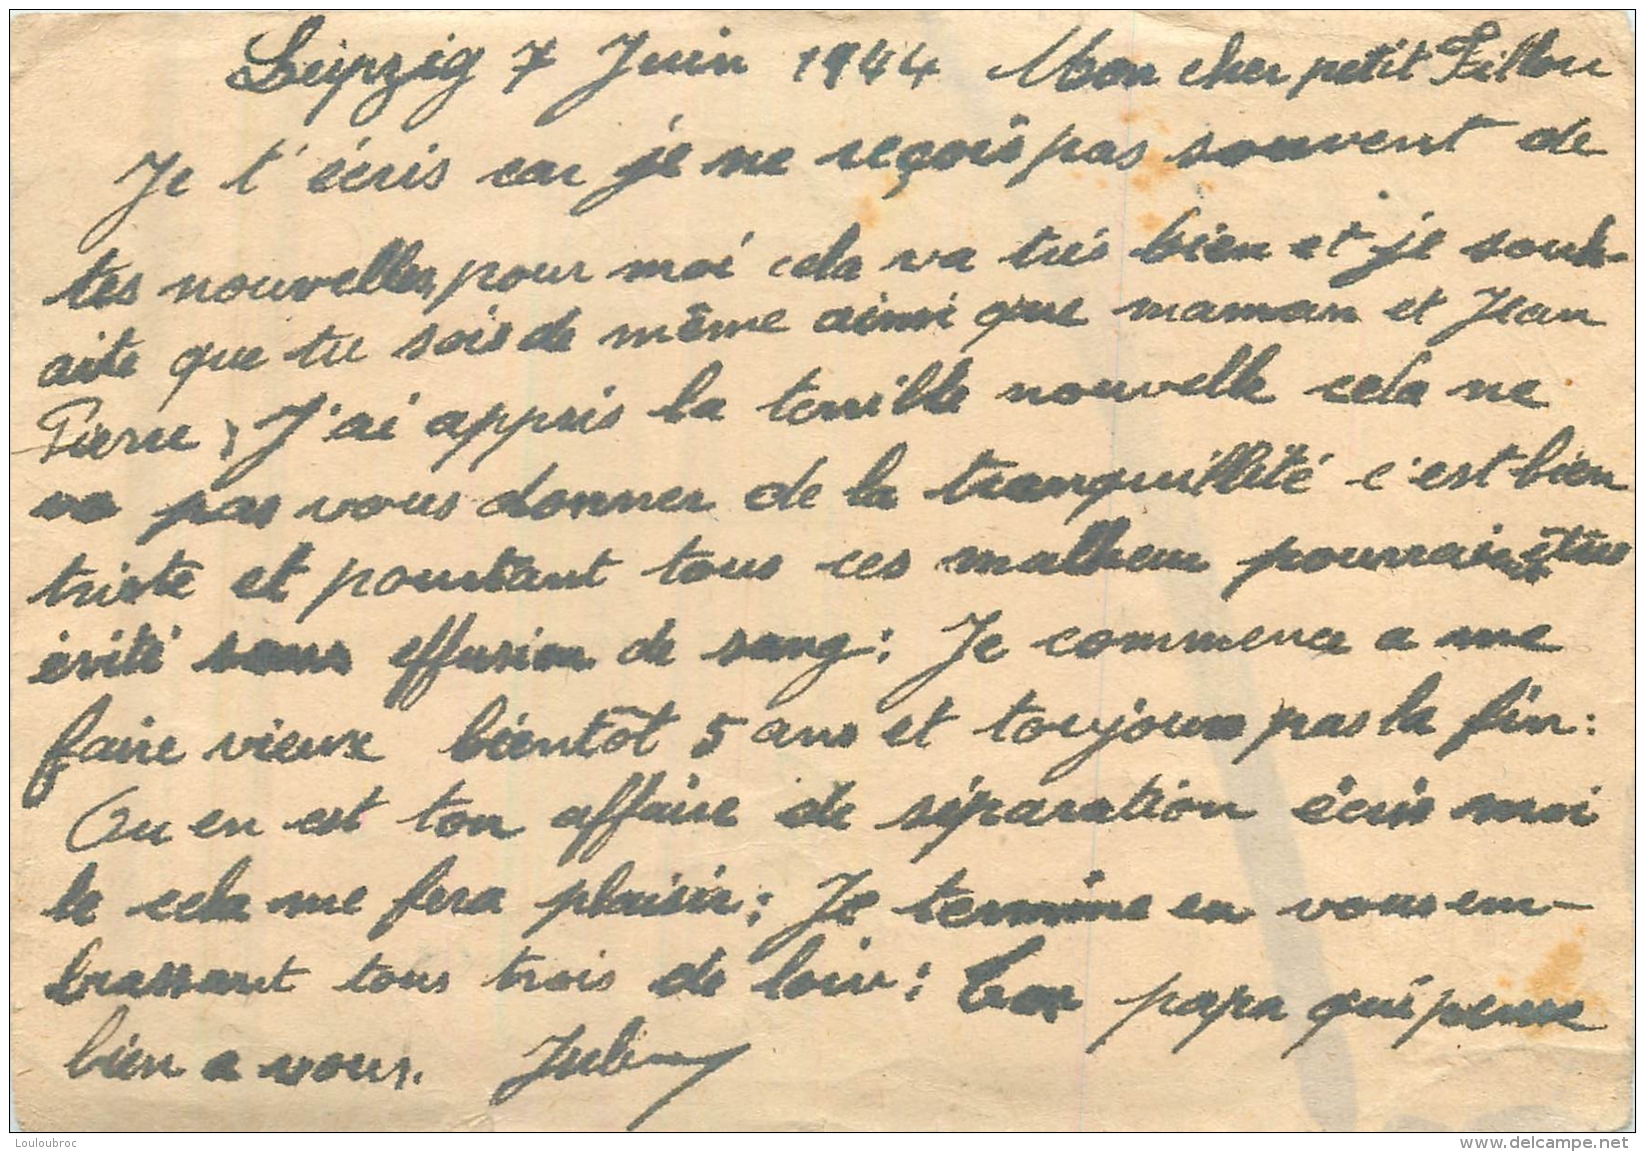 Leipzig 7 Juin 1944 Mon cher petit Fillou
Je t'écris car je ne reçois pas souvent de
tes nouvelles, pour moi cela va très bien et je souh-
aite que tu sois de même ainsi que maman et Jean
Pierre, J'ai appris la terrible nouvelle cela ne
va pas vous donner de la tranquillité c'est bien
triste et pourtant tous ces malheur pourrait être
évité sans effusion de sang: Je commence a me
faire vieux bientôt 5 ans et toujours pas la fin:
Ou en est ton affaire de séparation écris moi
le cela me fera plaisir: Je termine en vous em-
brassant tous trois de loin: Ton papa qui pense
bien a vous.
Louloubroc
my.delcampe.net